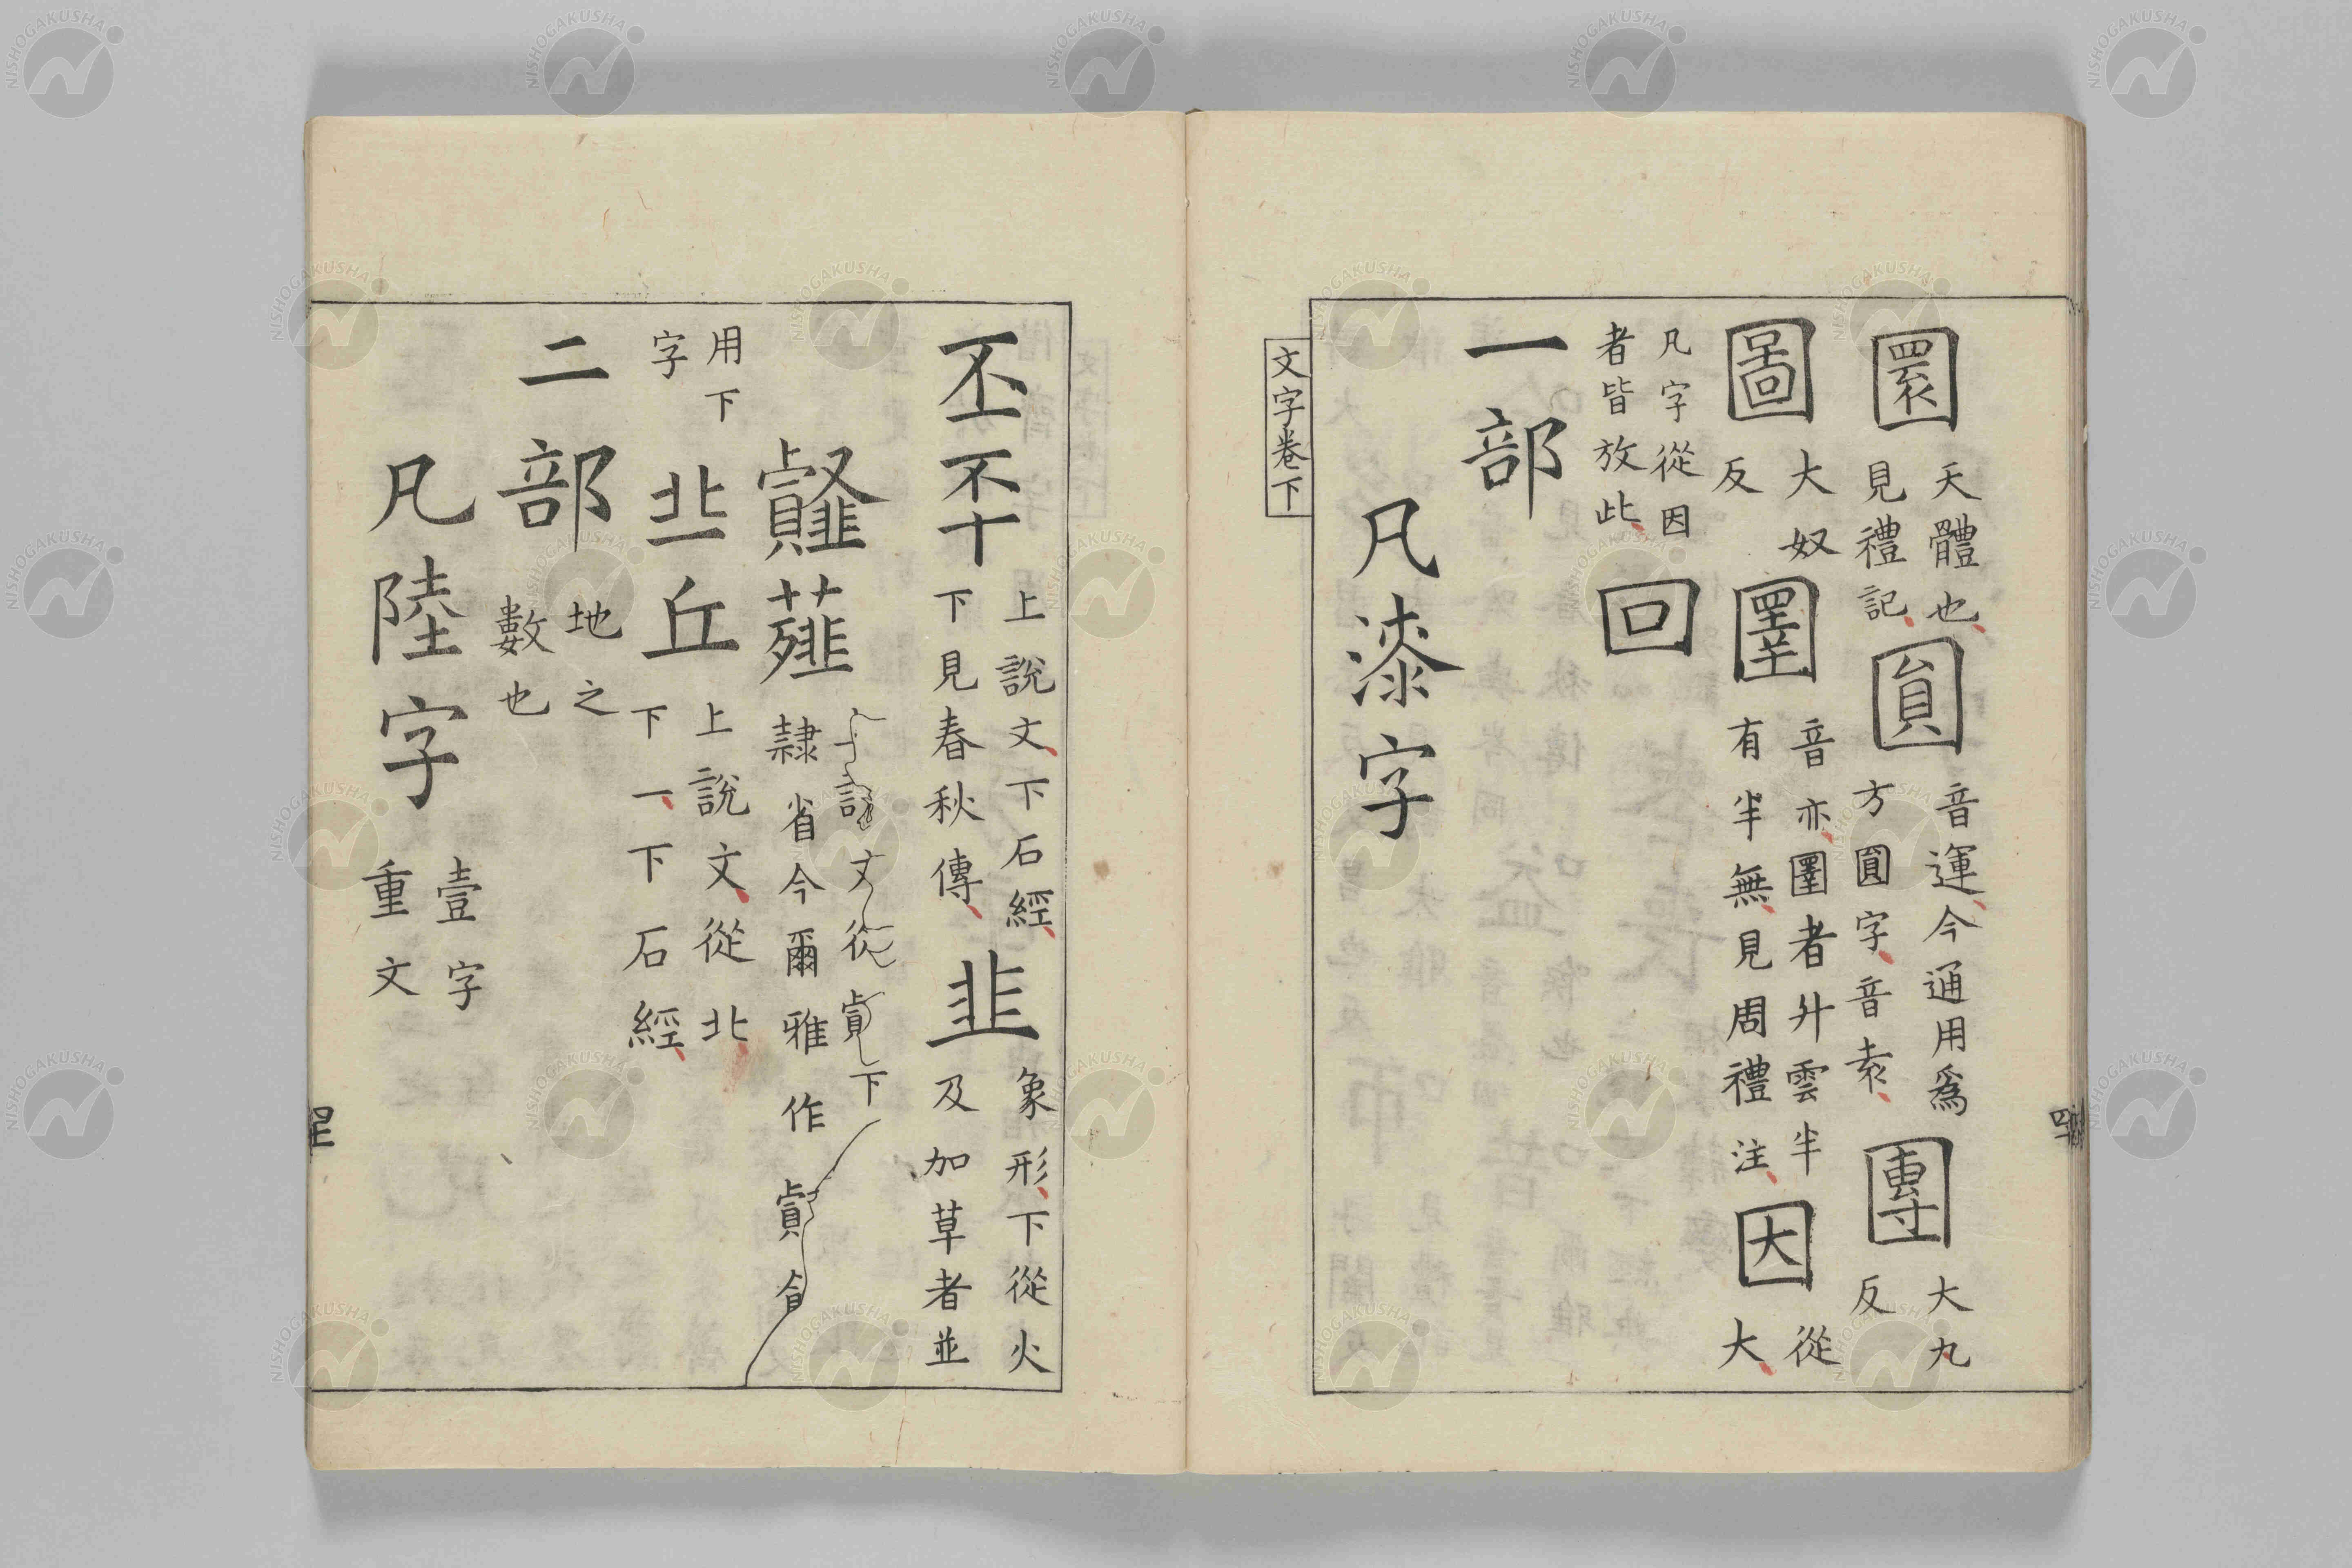 圜 天體也
見禮記 圓 音運今通用爲
方圓字音袁 團 大丸
反
圖 大奴
反 圛 音亦圛者升雲半
有半無見周禮注 因 從
大
凡字從因
者皆放此 回
一部
凡漆字
文字卷下
丕㔻 上說文下石經
下見春秋傳 韭 象形下從火
及加草者並
䪥薤
隷省今爾雅作
用下
字 丠丘 上說文從北
下一下石經
二部 地之
數也
凡陸字 壹字
重文
NISHOGAKUSHA